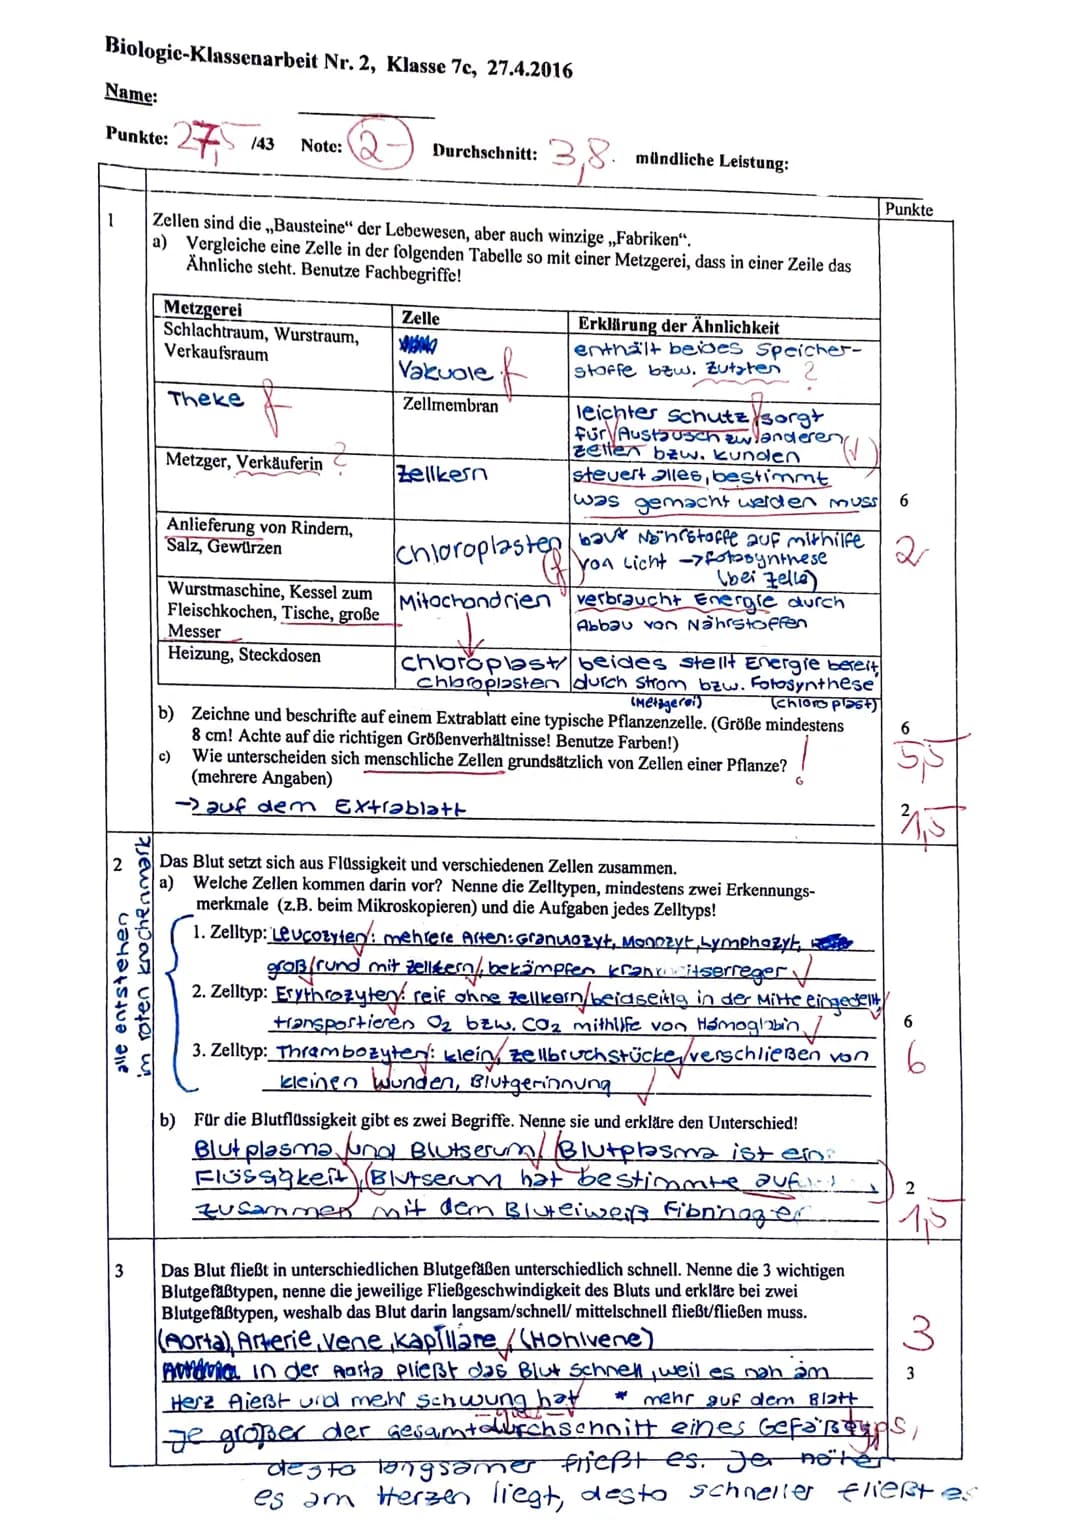 Biologie-Klassenarbeit Nr. 2, Klasse 7c, 27.4.2016
Name:
Punkte: 27,5 /43 Note: 2- Durchschnitt: 3,8. mündliche Leistung:
Punkte
1 Zellen sind die „Bausteine" der Lebewesen, aber auch winzige „Fabriken".
a) Vergleiche eine Zelle in der folgenden Tabelle so mit einer Metzgerei, dass in einer Zeile das
Ähnliche steht. Benutze Fachbegriffe!
Metzgerei Zelle Erklärung der Ähnlichkeit
Schlachtraum, Wurstraum,
Verkaufsraum
Vakuole f
enthält beides Speicher-
stoffe bzw. Zutaten ?
Theke f
Zellmembran
leichter Schutz f sorgt
für Austausch zw anderen
Zellen bzw. Kunden (√)
Metzger, Verkäuferin ?
Zellkern
steuert alles, bestimmt
was gemacht werden muss
6
Anlieferung von Rindern,
Salz, Gewürzen
Chloroplasten (f)
baut Nährstoffe auf mithilfe
von Licht → Fotosynthese
(bei Zelle)
2
Wurstmaschine, Kessel zum
Fleischkochen, Tische, große
Messer
Mitochondrien
verbraucht Energie durch
Abbau von Nährstoffen
Heizung, Steckdosen
Chloroplast/
Chloroplasten
beides stellt Energie bereit
durch Strom bzw. Fotosynthese
(Metzgerei) (Chloroplast)
b) Zeichne und beschrifte auf einem Extrablatt eine typische Pflanzenzelle. (Größe mindestens
8 cm! Achte auf die richtigen Größenverhältnisse! Benutze Farben!)
6
5,5
c) Wie unterscheiden sich menschliche Zellen grundsätzlich von Zellen einer Pflanze? !
(mehrere Angaben)
→ auf dem Extrablatt
2
1,5
2 Das Blut setzt sich aus Flüssigkeit und verschiedenen Zellen zusammen.
a) Welche Zellen kommen darin vor? Nenne die Zelltypen, mindestens zwei Erkennungs-
merkmale (z.B. beim Mikroskopieren) und die Aufgaben jedes Zelltyps!
alle entstehen
im roten Knochenmark
1. Zelltyp: Leucozyten: mehrere Arten: Granuozyt, Monozyt, Lymphozyt,
groß/rund mit Zellkern, bekämpfen Krankheitserreger √
2. Zelltyp: Erythrozyten: reif ohne Zellkern/beidseitig in der Mitte eingedellt
transportieren O2 bzw. CO2 mithilfe von Hämoglobin √
6
3. Zelltyp: Thrambozyten: klein, Zellbruchstücke/verschließen von
kleinen Wunden, Blutgerinnung √
6
b) Für die Blutflüssigkeit gibt es zwei Begriffe. Nenne sie und erkläre den Unterschied!
Blutplasma und Blutserum / Blutplasma ist eine
Flüssigkeit, (Blutserum hat bestimmte
zusammen mit dem Bluteiweiß
2
1,5
3 Das Blut fließt in unterschiedlichen Blutgefäßen unterschiedlich schnell. Nenne die 3 wichtigen
Blutgefäßtypen, nenne die jeweilige Fließgeschwindigkeit des Bluts und erkläre bei zwei
Blutgefäßtypen, weshalb das Blut darin langsam/schnell/ mittelschnell fließt/fließen muss.
(Aorta), Arterie, Vene, Kapillare √ (Hohlvene)
3
In der Aorta fließt das Blut schnell, weil es nah am
3
Herz fließt und mehr Schwung hat * mehr auf dem Blatt
Je größer der Gesamtdurchschnitt eines Gefäßtyps,
desto langsamer fließt es. Je näher
es am Herzen liegt, desto schneller fließt es